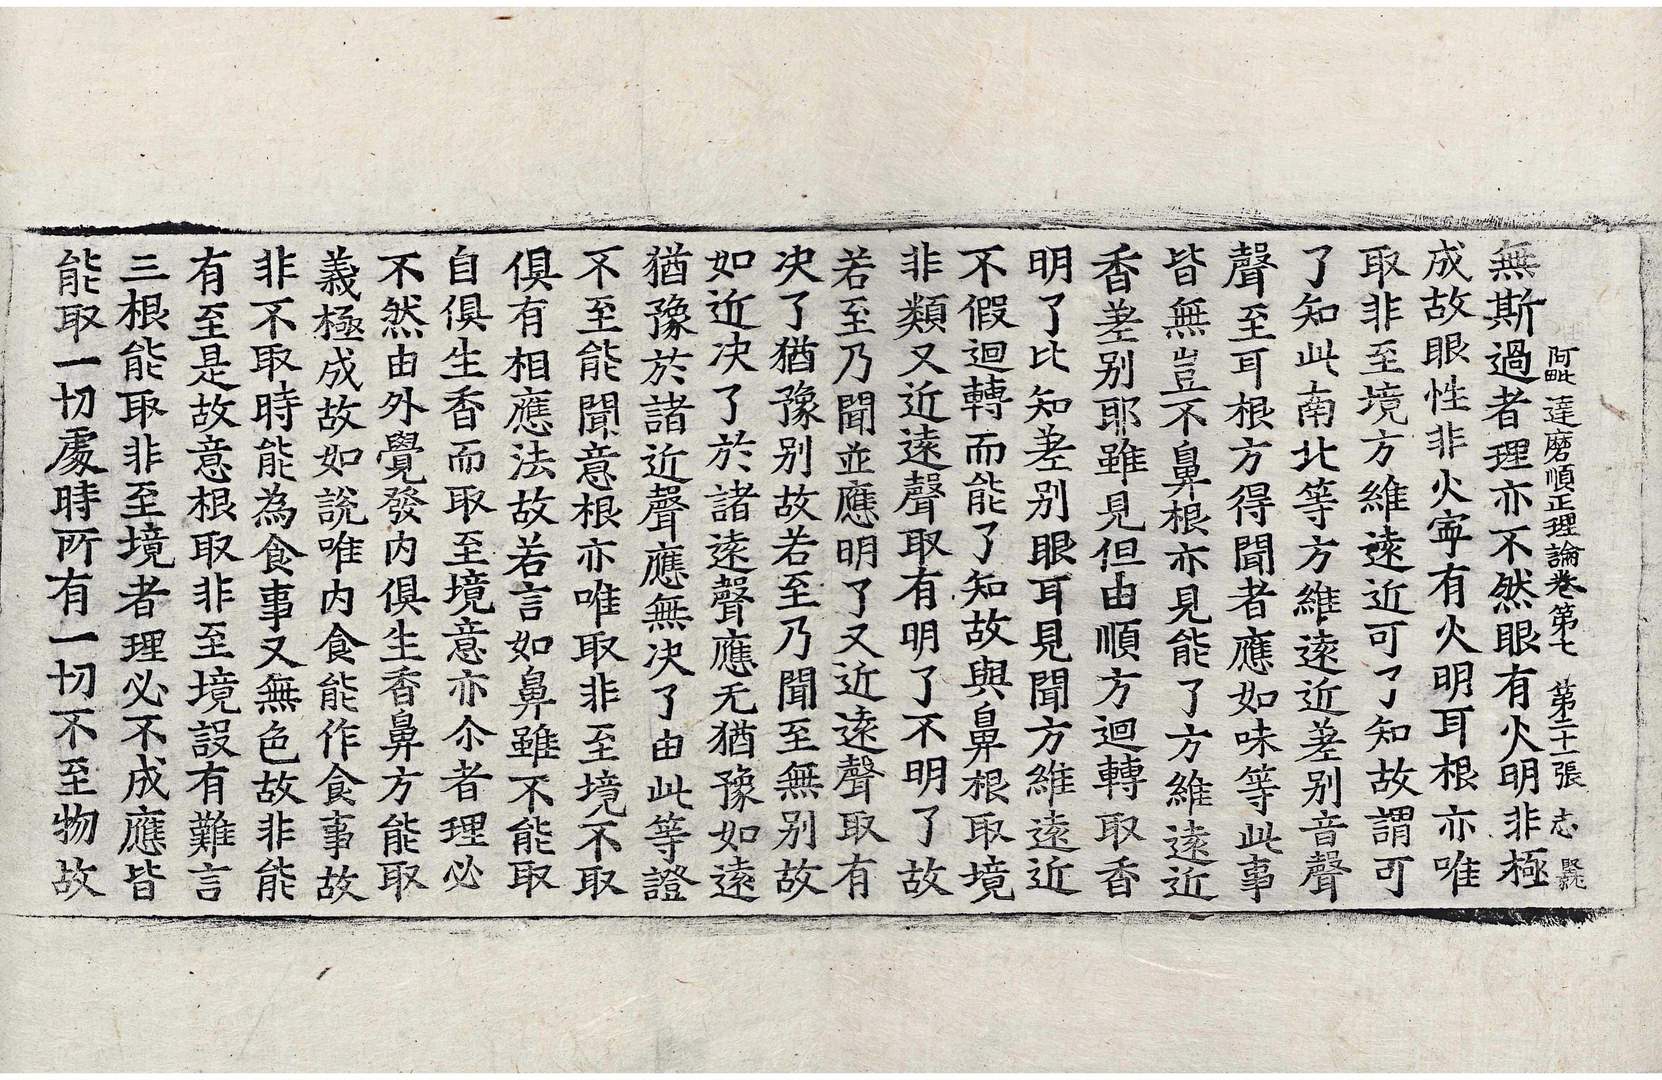 阿毗達磨順正理論卷第七 第二十一張 志
無斯過者理亦不然眼有火明非極
成故眼性非火寧有火明耳根亦唯
取非至境方維遠近可了知故謂可
了知此南北等方維遠近差別音聲
聲至耳根方得聞者應如味等此事
皆無豈不鼻根亦見能了方維遠近
香差別耶雖見但由順方迴轉取香
明了比知差別眼耳見聞方維遠近
不假迴轉而能了知故與鼻根取境
非類又近遠聲取有明了不明了故
若至乃聞並應明了又近遠聲取有
决了猶豫別故若至乃聞至無別故
如近决了於諸遠聲應无猶豫如遠
猶豫於諸近聲應無决了由此等證
不至能聞意根亦唯取非至境不取
俱有相應法故若言如鼻雖不能取
自俱生香而取至境意亦尒者理必
不然由外覺發内俱生香鼻方能取
義極成故如說唯内食能作食事故
非不取時能為食事又無色故非能
有至是故意根取非至境設有難言
三根能取非至境者理必不成應皆
能取一切處時所有一切不至物故